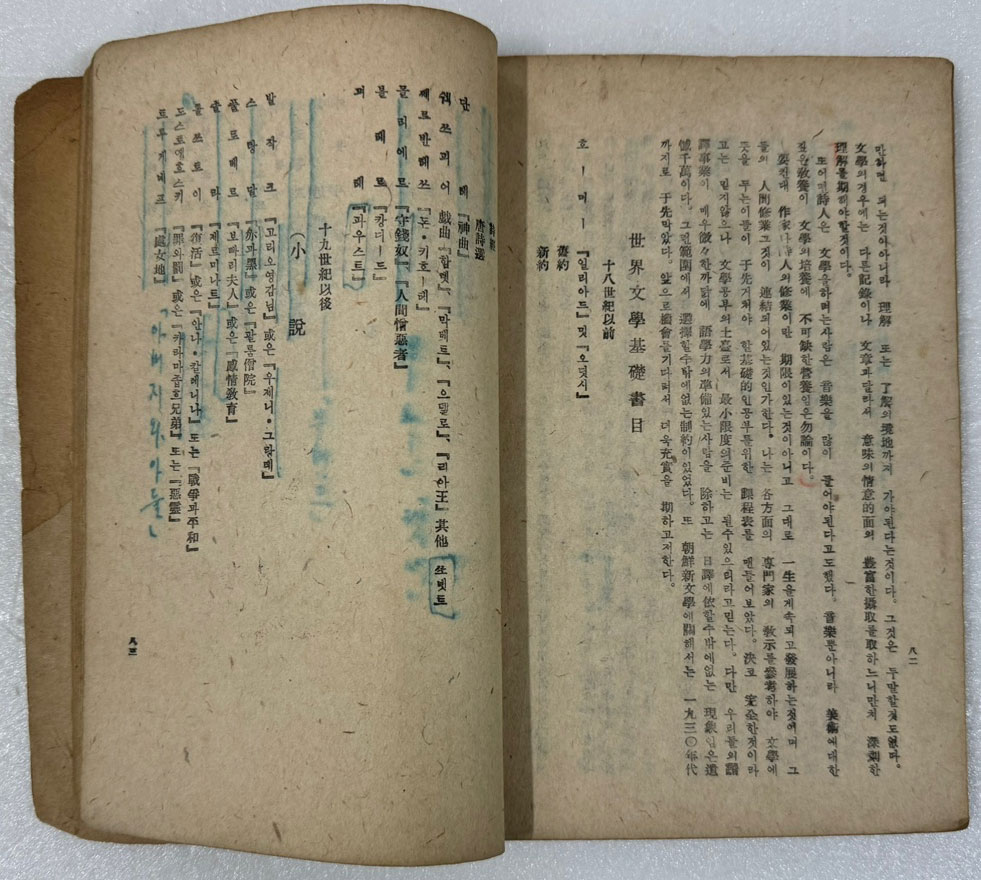 만하면 되는것이아니라 理解 또는 了解의境地까지 가야된다는것이다. 그것은 두말할것도없다.
文學의경우에는 다른記錄이나 文章과달라서 意味의情意的面의 豊富한攝取를取하느니만치 深刻한
理解를期해야할것이다.
또어떤詩人은 文學을하며는사람은 音樂을 많이 들어야된다고도했다. 音樂뿐아니라 美術에대한
깊은敎養이 文學의培養에 不可缺한營養임은勿論이다.
要컨대 作家나詩人의修業이란 期限이있는것이아니고 그대로 一生을계속되고發展하는것이며 그
들의 人間修業그것이 連結되어있는것인가한다. 나는 各方面의 專門家의 敎示를參考하야 文學에
뜻을 두는이들이 于先거처야 한基礎的인공부를위한 課程表를 맨들어보았다. 決코 完全한것이라
고는 믿지않으나 文學공부의土臺로서 最小限度의준비는 될수있으리라고믿는다. 다만 우리들의飜
譯事業이 매우微々한까닭에 語學力의準備있는사람을 除하고는 日譯에依할수밖에없는 現象임은遺
憾千萬이다. 그런範圍에서 選擇할수밖에없는制約이있었다. 또 朝鮮新文學에關해서는 一九三〇年代
까지로 于先막았다. 앞으로機會를기다려서 더욱充實을 期하고저한다.
世界文學基礎書目
十八世紀以前
호ー머ー 『일리아드』및『오딧시』
舊約
新約
八二
唐詩選
단테 『神曲』
쉑쓰피어 戱曲『함렡』、『막베트』、『으델로』、『리아王』其他 쏘넷트
쎄르반테쓰 『돈・키호ー테』
몰리에르 『守錢奴』、『人間憎惡者』
볼테르 『캉디ー드』
괴테 『파우스트』
十九世紀以後
(小 說
발작크 『고리오영감님』或은『우제니・그랑데』
스탕달 『赤과黑』或은『팔롱僧院』
풀로베르 『보바리夫人』或은『感情敎育』
졸라 『제르미나트』
톨쓰토이 『復活』或은『안나・칼에니나』또는『戰爭과平和』
도스토예흐스키 『罪와罰』或은『카라마좁흐兄弟』또는『惡靈』
트루게네프 『處女地』 『아버지와 아들』
八三